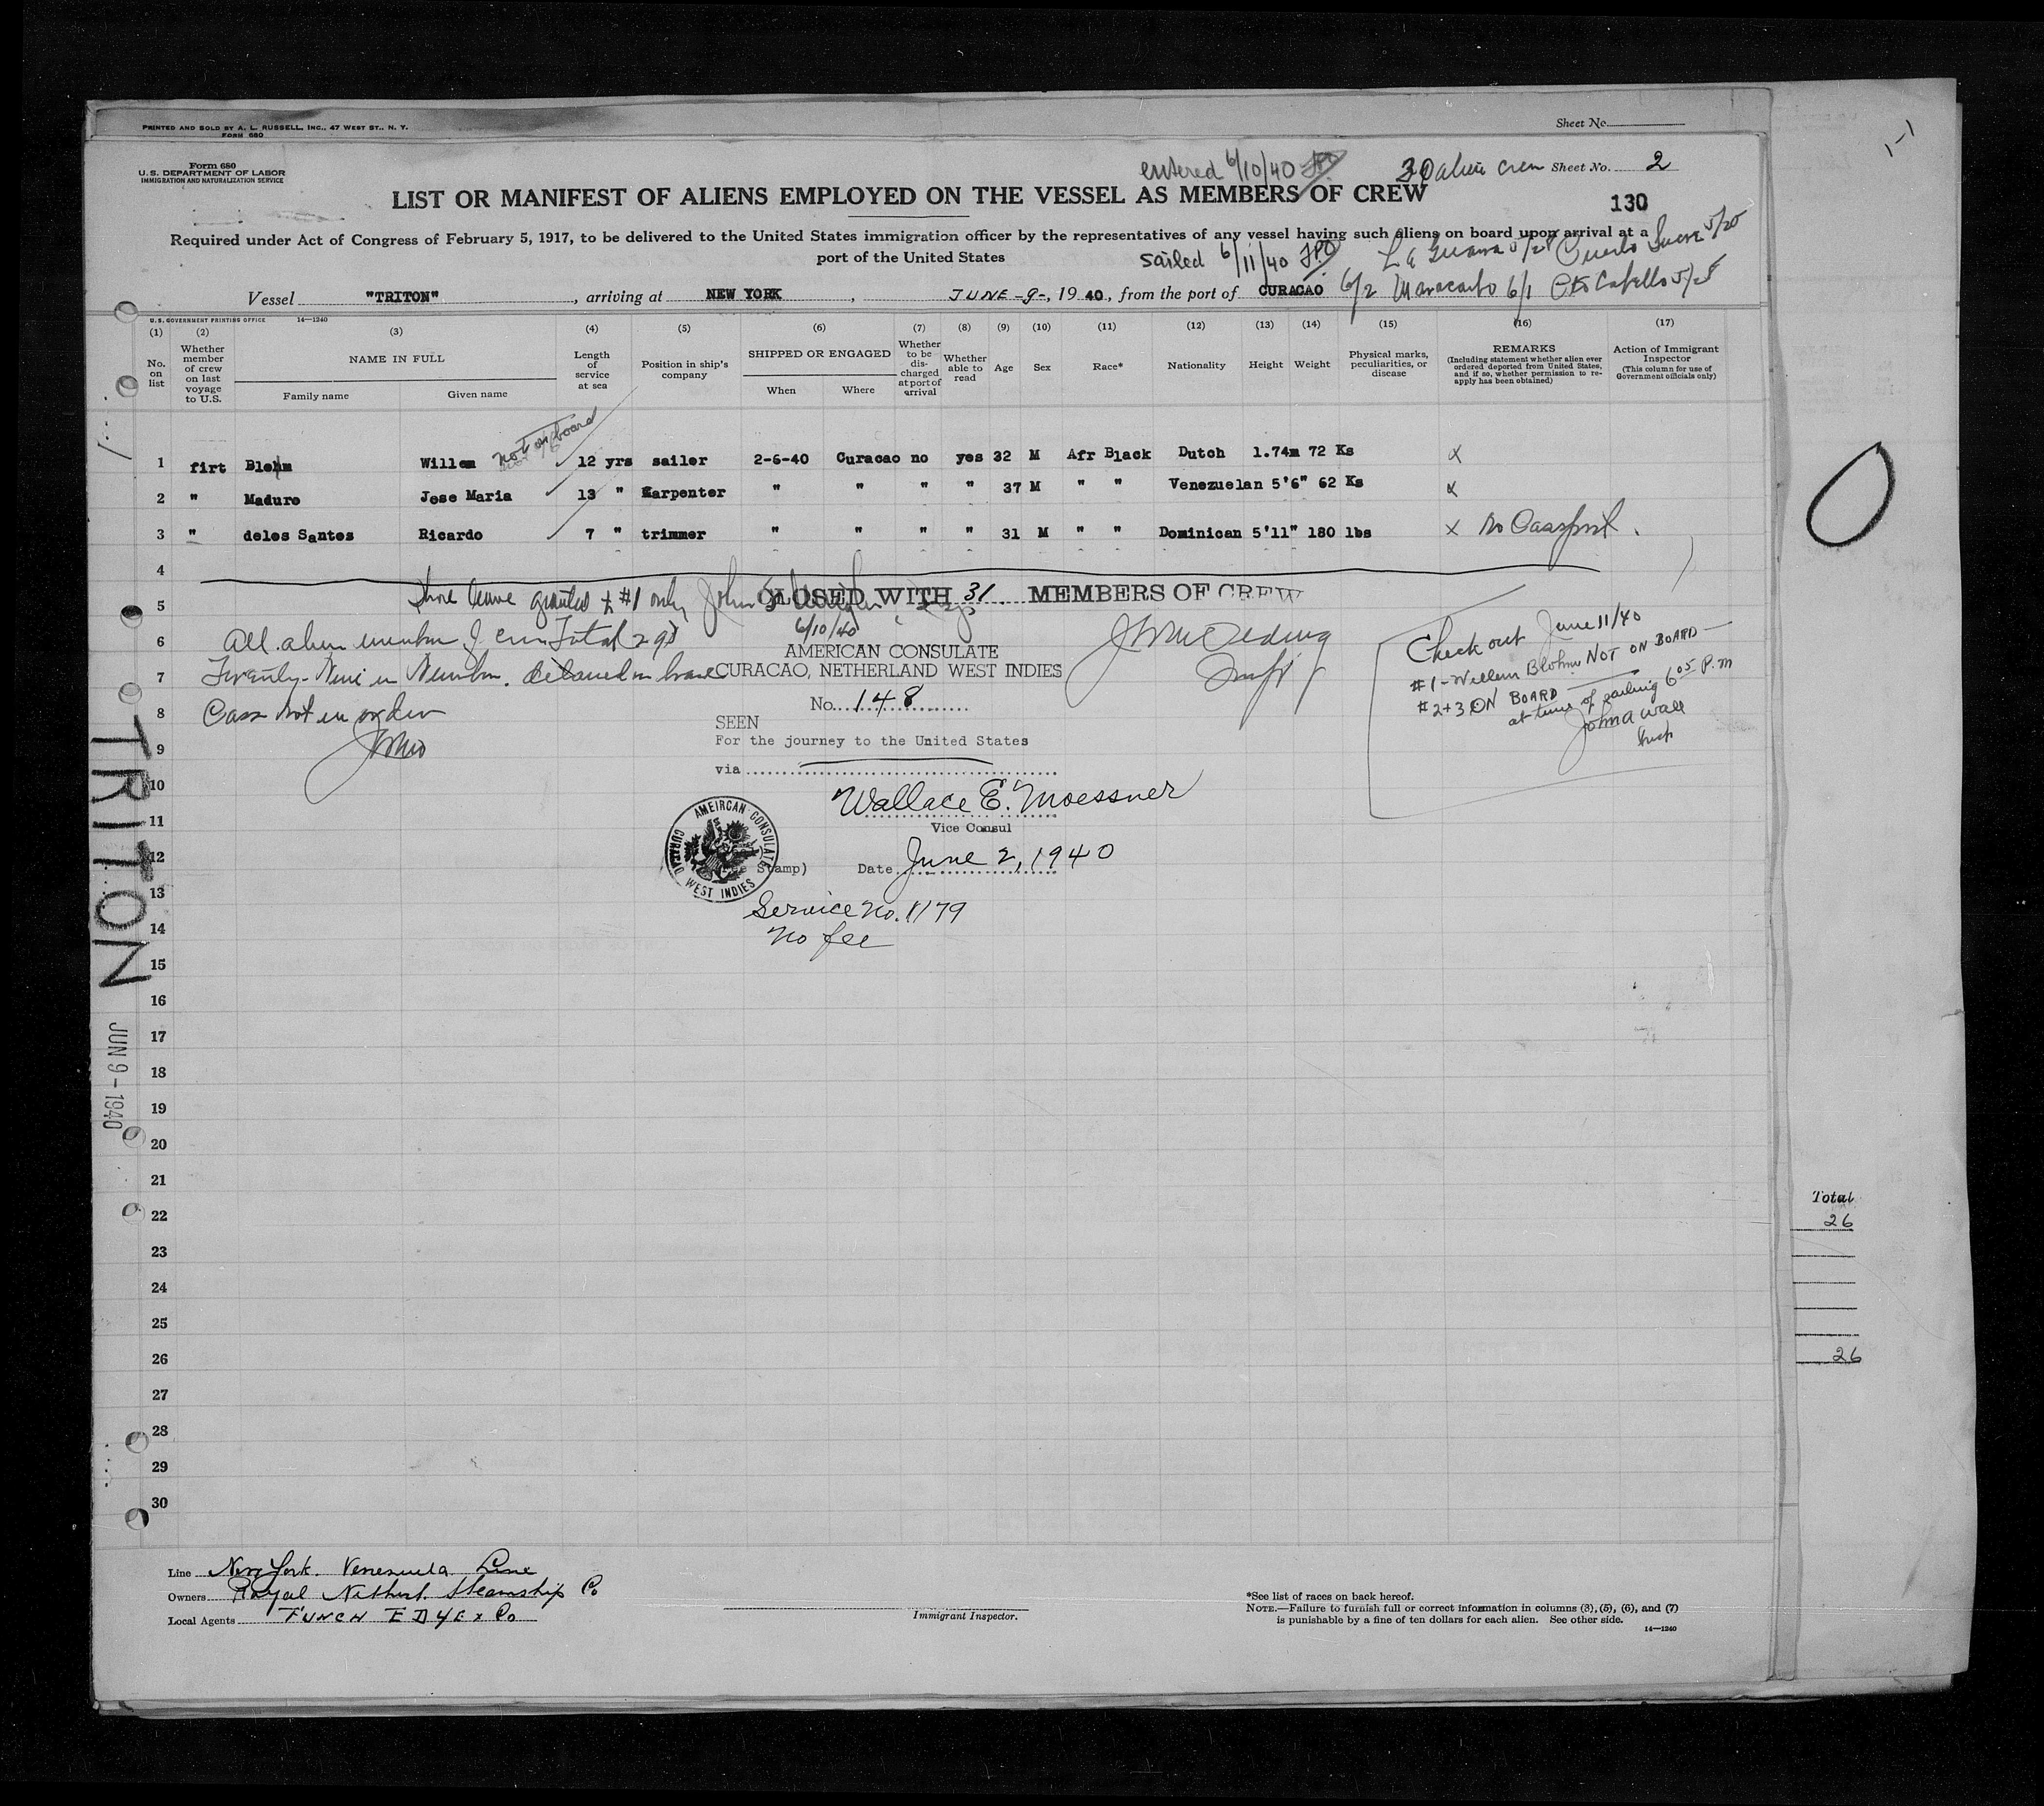 PRINTED AND SOLD BY A. L. RUSSELL, INC., 47 WEST ST., N. Y.
FORM 680
Sheet No.
Form 680
U.S. DEPARTMENT OF LABOR
IMMIGRATION AND NATURALIZATION SERVICE
entered 6/10/40
30 alien crew Sheet No. 2
LIST OR MANIFEST OF ALIENS EMPLOYED ON THE VESSEL AS MEMBERS OF CREW
130
Required under Act of Congress of February 5, 1917, to be delivered to the United States immigration officer by the representatives of any vessel having such aliens on board upon arrival at a
port of the United States
sailed 6/11/40
La Guaira 5/28 Puerto Sucre 5/25
Vessel "TRITON", arriving at NEW YORK, JUNE -9-, 1940, from the port of CURACAO 6/2 Maracaibo 6/1 Pto Cabello 5/28
U.S. GOVERNMENT PRINTING OFFICE 14—1240
(1) (2) (3) (4) (5) (6) (7) (8) (9) (10) (11) (12) (13) (14) (15) (16) (17)
No. on list
Whether member of crew on last voyage to U.S.
NAME IN FULL
Family name
Given name
Length of service at sea
Position in ship's company
SHIPPED OR ENGAGED
When
Where
Whether to be discharged at port of arrival
Whether able to read
Age
Sex
Race*
Nationality
Height
Weight
Physical marks, peculiarities, or disease
REMARKS
(Including statement whether alien ever ordered deported from United States, and if so, whether permission to reapply has been obtained)
Action of Immigrant Inspector
(This column for use of Government officials only)
not on board
1 firt Blohm Willem 12 yrs sailer 2-6-40 Curacao no yes 32 M Afr Black Dutch 1.74m 72 Ks x
2 " Maduro Jose Maria 13 " Karpenter " " " " 37 M " " Venezuelan 5'6" 62 Ks x
3 " delos Santos Ricardo 7 " trimmer " " " " 31 M " " Dominican 5'11" 180 lbs x No Passport.
4
5
Shore leave granted to #1 only John
CLOSED WITH 31 MEMBERS OF CREW
6/10/40
6
All alien members of crew Total 29
AMERICAN CONSULATE
7
Twenty-Nine in Number. detained on board
CURACAO, NETHERLAND WEST INDIES
8
Pass not in order
No. 148
SEEN
For the journey to the United States
via
Wallace E. Moessner
Vice Consul
AMEIRCAN CONSULATE CURACAO WEST INDIES
Stamp)
Date June 2, 1940
Service No. 1179
No fee
Check out June 11/40
#1 - Willem Blohm NOT ON BOARD —
#2+3 ON BOARD
at time of sailing 6:05 P.m
John A Wall
Insp
9
10
11
12
13
14
15
16
17
18
19
20
21
22
23
24
25
26
27
28
29
30
TRITON
JUN 9 - 1940
Total
26
26
Line New York. Venezuela Line
Owners Royal Netherl. Steamship Co
Local Agents FUNCH EDYE & Co
Immigrant Inspector.
*See list of races on back hereof.
NOTE.—Failure to furnish full or correct information in columns (3), (5), (6), and (7)
is punishable by a fine of ten dollars for each alien. See other side.
14—1240